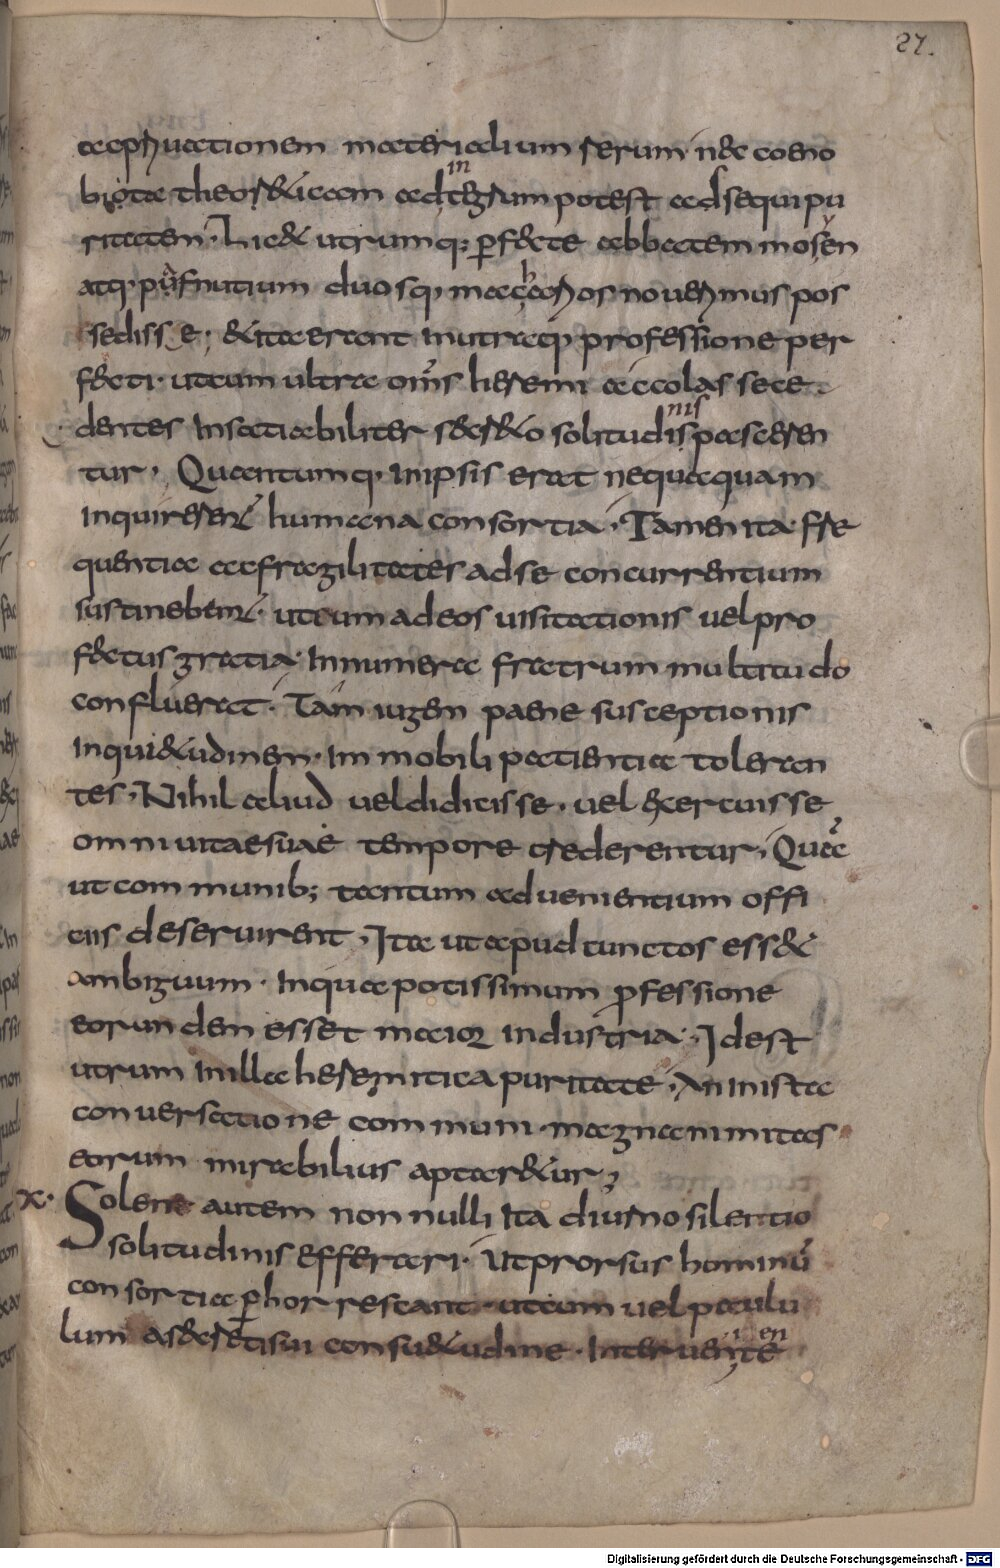 27.
actuationem materialium rerum nec coeno
biota theoreticam ad integrum potest adsequi pu
ritatem. Licet utrumq; ꝑfecte abbatem mosen
atq; pafnutium duosq; machahos nouerimus pos
sedisse; & ita erant in utraq; professione per
fecti. ut cum ultra om̄s heremi accolas sece
dentes insatiabiliter secreto solitudinis pasceren
tur. Quantumq; in ipsis erat nequaquam
inquirerent humana consortia. Tamen ita fre
quentia ac fragilitates ad se concurrentium
sustinebant. ut cum ad eos uisitationis uel pro
fectus gratia innumera fratrum multitudo
conflueret. Tam iugem paene susceptionis
inqui&udinem. immobili patientia toleran
tes. Nihil aliud uel didicisse. uel exercuisse
omni uitae suae tempore crederentur. Quā
ut communib; tantum aduenientium offi
ciis deseruirent. Ita ut apud cunctos ess&
ambiguum. In qua potissimum ꝓfessione
eorundem esset maior industria. Id est
utrum in illa heremitica puritate. An in ista
conuersatione communi magnanimitas
eorum mirabilius aptar&ur;
x. Solent autem nonnulli ita diurno silentio
solitudinis efferari. Ut prorsus hominū
consortia ꝑhorrescant. ut cum uel paulu
lum a secretis sui consu&udine. Interueniente
Digitalisierung gefördert durch die Deutsche Forschungsgemeinschaft - DFG